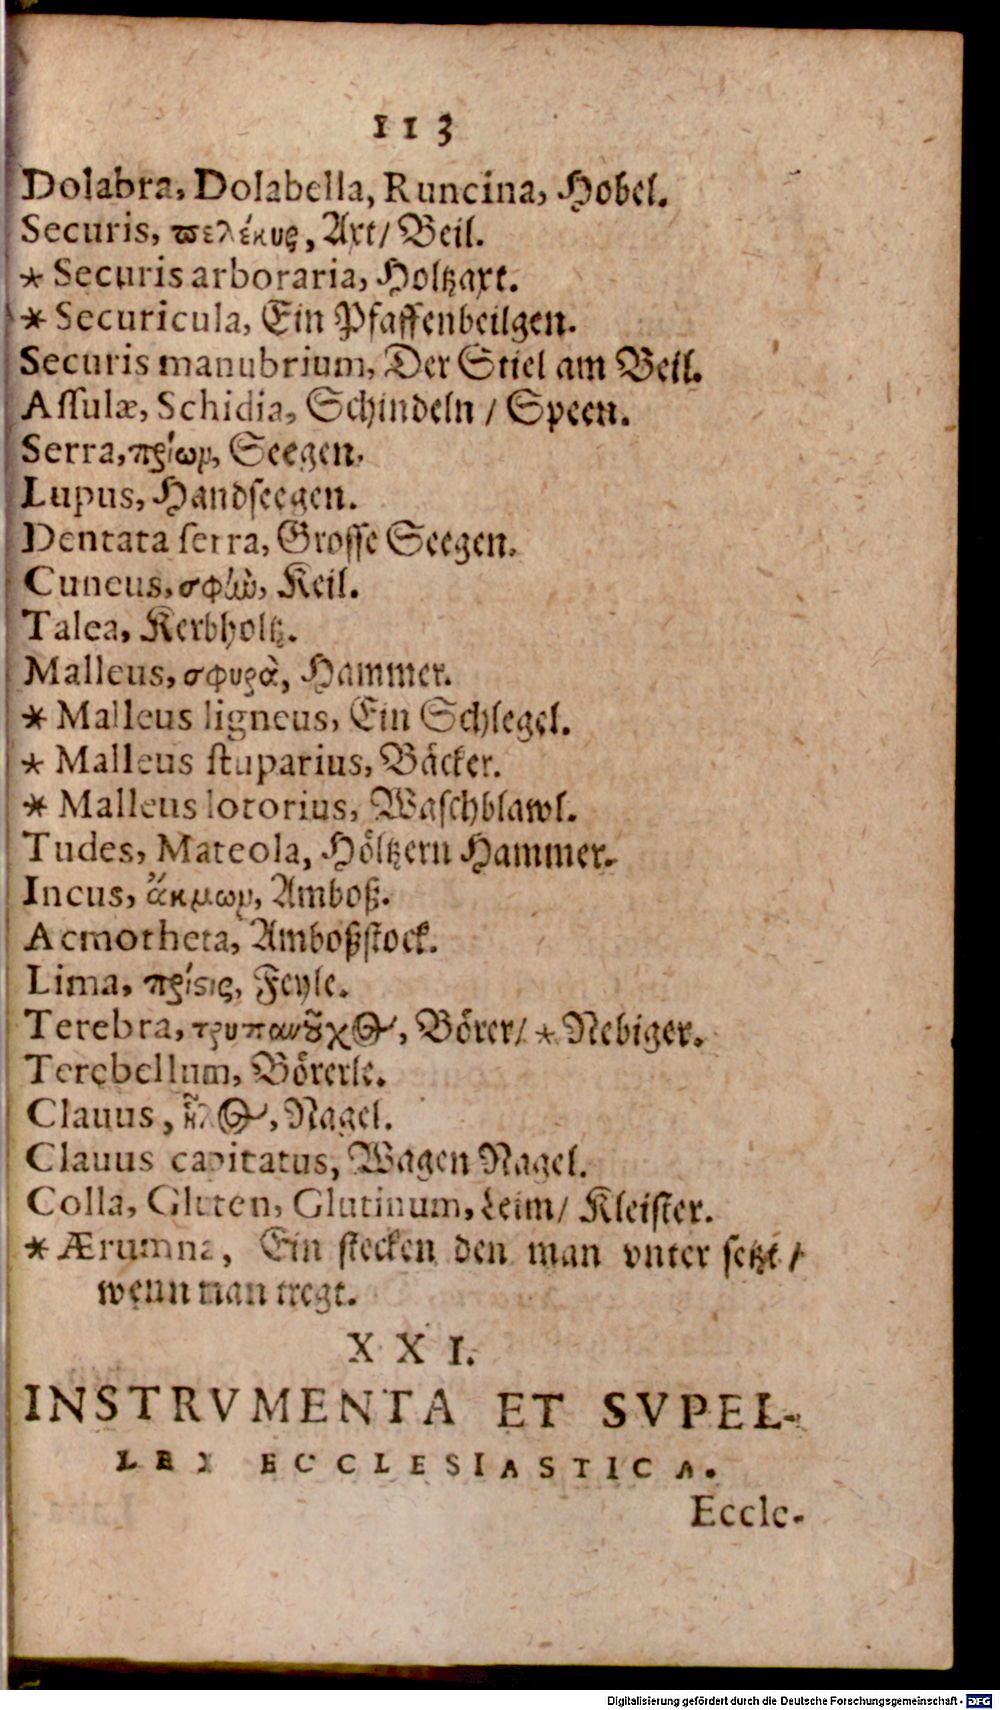 113
Dolabra, Dolabella, Runcina, Hobel.
Securis, ϖελέκυς, Axt/ Beil.
* Securis arboraria, Holtzaxt.
* Securicula, Ein Pfaffenbeilgen.
Securis manubrium, Der Stiel am Beil.
Aſſulæ, Schidia, Schindeln / Speen.
Serra, πρίων, Seegen.
Lupus, Handſeegen.
Dentata ſerra, Groſſe Seegen.
Cuneus, Keil.
Talea, Kerbholtz.
Malleus, σφυρὰ, Hammer.
* Malleus ligneus, Ein Schlegel.
* Malleus ſtuparius, Bäcker.
* Malleus lotorius, Waſchblawl.
Tudes, Mateola, Höltzern Hammer.
Incus, ἄκμων, Amboß.
Acmotheta, Amboßſtock.
Lima, πρίσις, Feyle.
Terebra, τρυπανȣ͂χος, Börer/ * Nebiger.
Terebellum, Börerle.
Clauus, ἧλος, Nagel.
Clauus capitatus, Wagen Nagel.
Colla, Gluten, Glutinum, Leim/ Kleiſter.
* Ærumna, Ein ſtecken den man vnter ſetzt /
wenn man tregt.
XXI.
INSTRVMENTA ET SVPEL-
LEX ECCLESIASTICA.
Eccle-
Digitalisierung gefördert durch die Deutsche Forschungsgemeinschaft - DFG